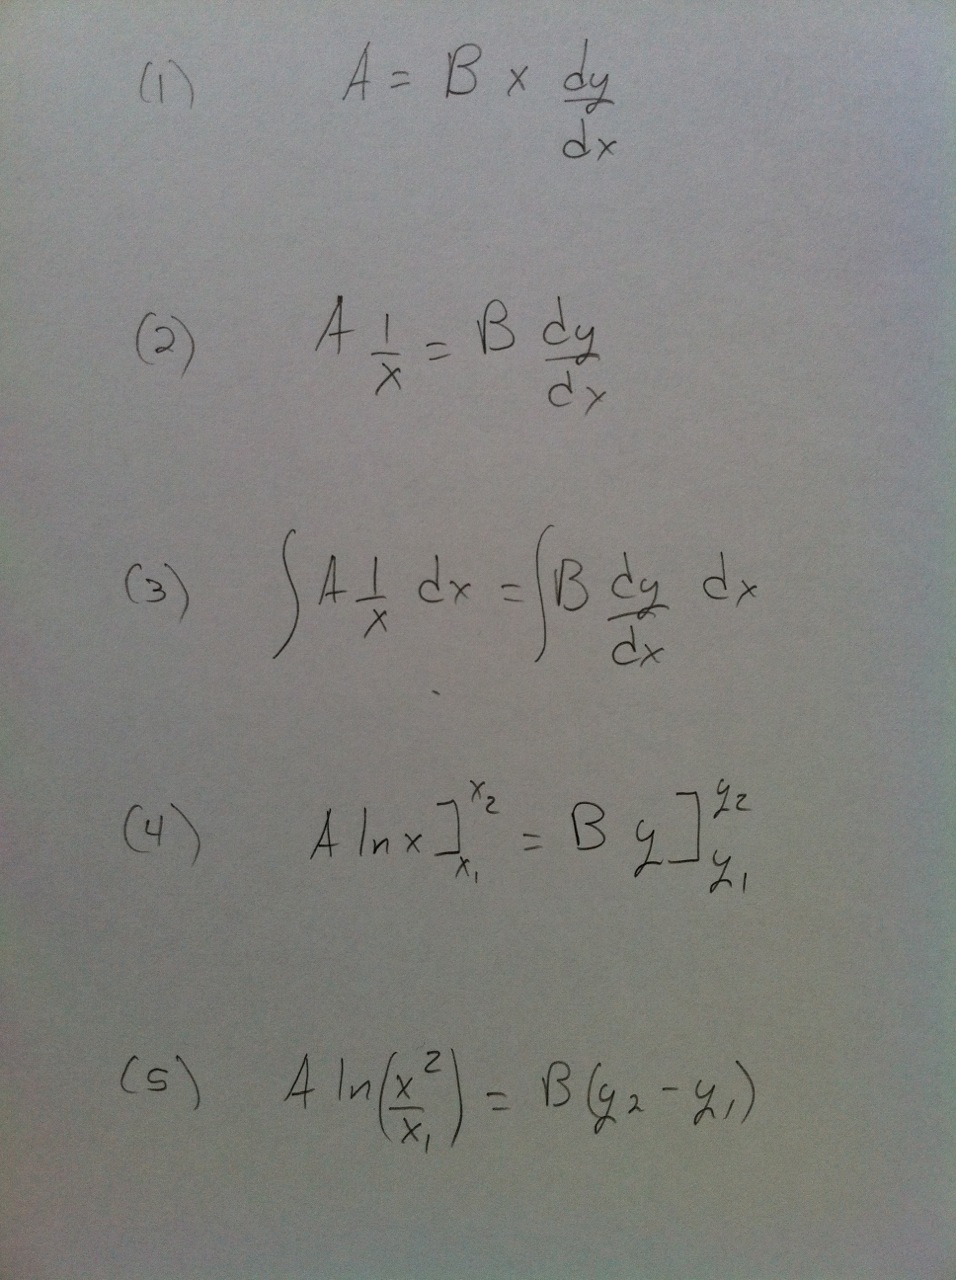 (1) A = B x dy/dx
(2) A 1/x = B dy/dx
(3) ∫ A 1/x dx = ∫ B dy/dx dx
(4) A ln x ]_{x_1}^{x_2} = B y ]_{y_1}^{y_2}
(5) A ln(x^2/x_1) = B(y_2 - y_1)